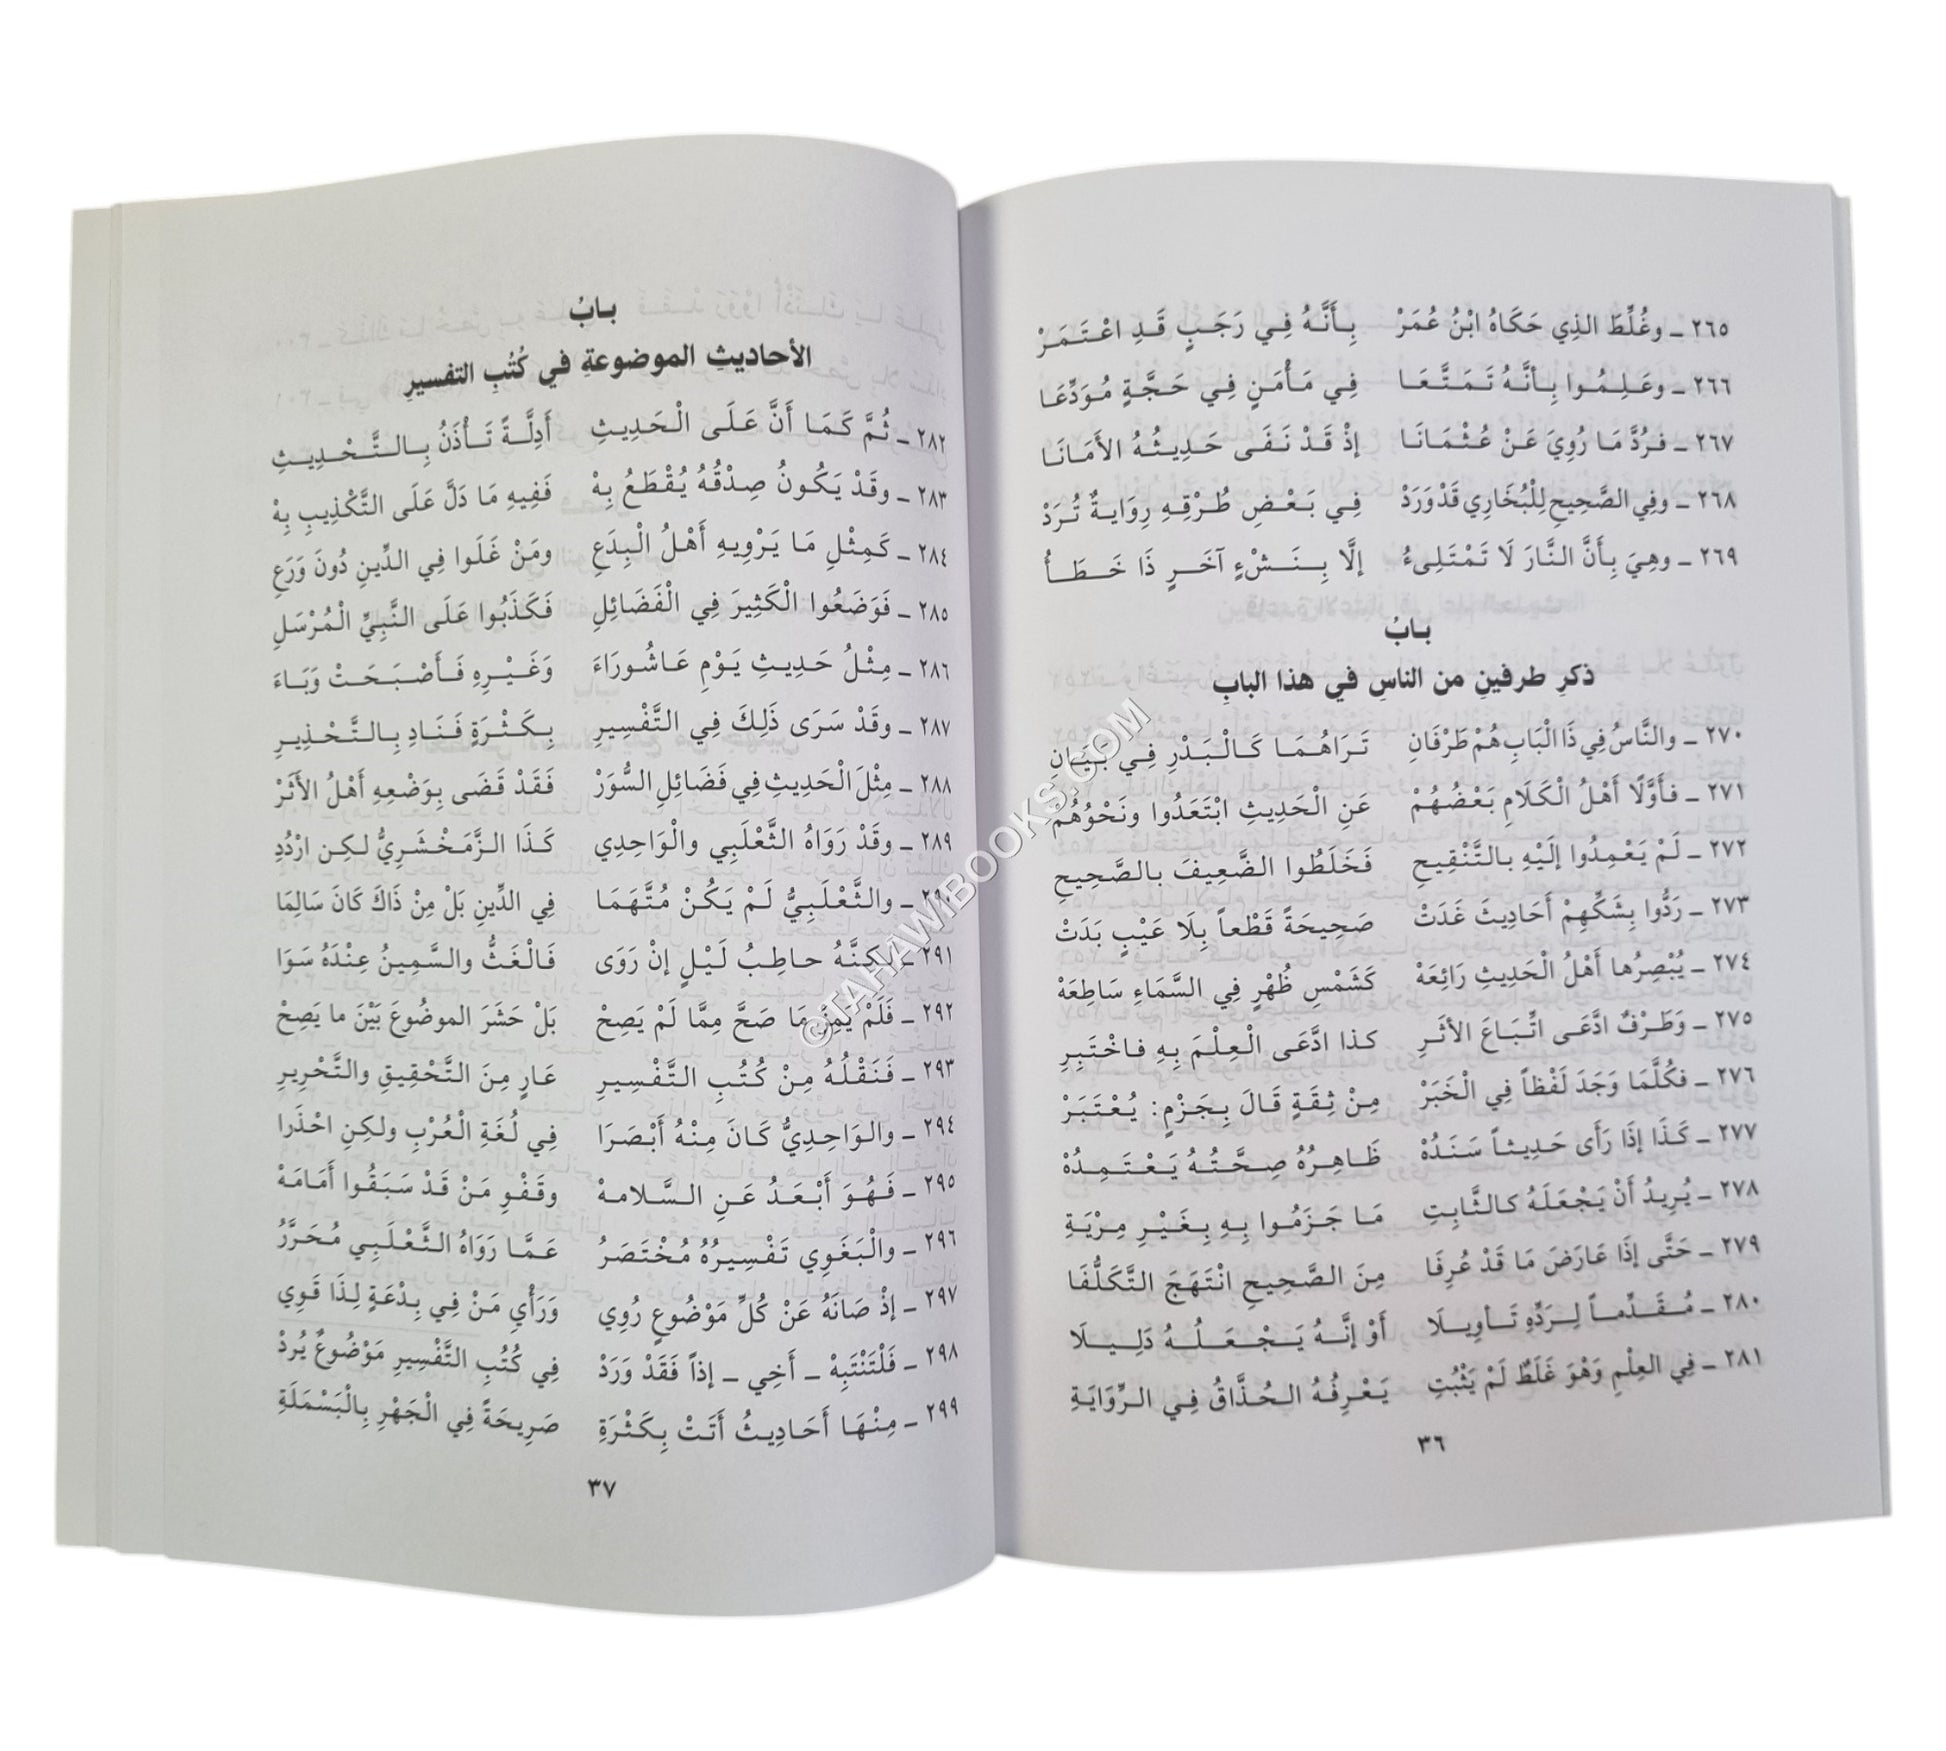 ٢٦٥ ـ وغُلِّطَ الذِي حَكَاهُ ابْنُ عُمَرْ بِأَنَّهُ فِي رَجَبٍ قَدِ اعْتَمَرْ
٢٦٦ ـ وعَلِمُوا بِأنَّهُ تَمَتَّعَا فِي مَأْمَنٍ فِي حَجَّةٍ مُوَدِّعَا
٢٦٧ ـ فرُدَّ مَا رُوِيَ عَنْ عُثْمَانَا إذْ قَدْ نَفَى حَدِيثُهُ الأَمَانَا
٢٦٨ ـ وفِي الصَّحِيحِ لِلْبُخَارِي قَدْ وَرَدْ فِي بَعْضِ طُرْقِهِ رِوَايةٌ تُرَدْ
٢٦٩ ـ وهِيَ بِأَنَّ النَّارَ لَا تَمْتَلِىءُ إلَّا بِنَشْءٍ آخَرٍ ذَا خَطَأُ
بابُ
ذكرِ طرفينِ من الناسِ في هذا البابِ
٢٧٠ ـ والنَّاسُ فِي ذَا الْبَابِ هُمْ طَرْفَانِ تَرَاهُمَا كَالْبَدْرِ فِي بَيَانِ
٢٧١ ـ فأَوَّلًا أَهْلُ الْكَلَامِ بَعْضُهُمْ عَنِ الْحَدِيثِ ابْتَعَدُوا ونَحْوُهُمْ
٢٧٢ ـ لَمْ يَعْمِدُوا إلَيْهِ بالتَّنْقِيحِ فَخَلَطُوا الضَّعِيفَ بالصَّحِيحِ
٢٧٣ ـ رَدُّوا بِشَكِّهِمْ أَحَادِيثَ غَدَتْ صَحِيحَةً قَطْعاً بِلَا عَيْبٍ بَدَتْ
٢٧٤ ـ يُبْصِرُها أَهْلُ الْحَدِيثِ رَائِعَهْ كَشَمْسِ ظُهْرٍ فِي السَّمَاءِ سَاطِعَهْ
٢٧٥ ـ وَطَرْفٌ ادَّعَى اتِّبَاعَ الأثَرِ كذا ادَّعَى الْعِلْمَ بِهِ فاخْتَبِرِ
٢٧٦ ـ فكُلَّمَا وَجَدَ لَفْظاً فِي الْخَبَرْ مِنْ ثِقَةٍ قَالَ بِجَزْمٍ: يُعْتَبَرْ
٢٧٧ ـ كَذَا إذَا رَأَى حَدِيثاً سَنَدُهْ ظَاهِرُهُ صِحَّتُهُ يَعْتَمِدُهْ
٢٧٨ ـ يُرِيدُ أَنْ يَجْعَلَهُ كالثَّابِتِ مَا جَزَمُوا بِهِ بِغَيْرِ مِرْيَةِ
٢٧٩ ـ حَتَّى إذَا عَارَضَ مَا قَدْ عُرِفَا مِنَ الصَّحِيحِ انْتَهَجَ التَّكَلُّفَا
٢٨٠ ـ مُقَدِّماً لِرَدِّهِ تَأوِيلَا أَوْ إنَّهُ يَجْعَلُهُ دَلِيلَا
٢٨١ ـ فِي العِلْمِ وَهْوَ غَلَطٌ لَمْ يَثْبُتِ يَعْرِفُهُ الحُذَّاقُ فِي الرِّوَايَةِ
٣٦
بابُ
الأحاديثِ الموضوعةِ في كُتُبِ التفسيرِ
٢٨٢ ـ ثُمَّ كَمَا أَنَّ عَلَى الْحَدِيثِ أَدِلَّةً تَأْذَنُ بِالتَّحْدِيثِ
٢٨٣ ـ وقَدْ يَكُونُ صِدْقُهُ يُقْطَعُ بِهْ فَفِيهِ مَا دَلَّ عَلَى التَّكْذِيبِ بِهْ
٢٨٤ ـ كَمِثْلِ مَا يَرْوِيهِ أَهْلُ الْبِدَعِ ومَنْ غَلَوا فِي الدِّينِ دُونَ وَرَعِ
٢٨٥ ـ فَوَضَعُوا الْكَثِيرَ فِي الْفَضَائِلِ فَكَذَبُوا عَلَى النَّبِيِّ الْمُرْسَلِ
٢٨٦ ـ مِثْلُ حَدِيثِ يَوْمِ عَاشُورَاءَ وَغَيْرِهِ فَأَصْبَحَتْ وَبَاءَ
٢٨٧ ـ وقَدْ سَرَى ذَلِكَ فِي التَّفْسِيرِ بِكَثْرَةٍ فَنَادِ بِالتَّحْذِيرِ
٢٨٨ ـ مِثْلَ الْحَدِيثِ فِي فَضَائِلِ السُّوَرْ فَقَدْ قَضَى بِوَضْعِهِ أَهْلُ الأَثَرْ
٢٨٩ ـ وقَدْ رَوَاهُ الثَّعْلَبِي والْوَاحِدِي كَذَا الزَّمَخْشَرِيُّ لكِن ازْدُدِ
٢٩٠ ـ والثَّعْلَبِيُّ لَمْ يَكُنْ مُتَّهَمَا فِي الدِّينِ بَلْ مِنْ ذَاكَ كَانَ سَالِمَا
٢٩١ ـ لكِنَّهُ حاطِبُ لَيْلٍ إنْ رَوَى فَالْغَثُّ والسَّمِينُ عِنْدَهُ سَوَا
٢٩٢ ـ فَلَمْ يَمِزْ مَا صَحَّ مِمَّا لَمْ يَصِحْ بَلْ حَشَرَ الموضُوعَ بَيْنَ ما يَصِحْ
٢٩٣ ـ فَنَقْلُهُ مِنْ كُتُبِ التَّفْسِيرِ عَارٍ مِنَ التَّحْقِيقِ والتَّحْرِيرِ
٢٩٤ ـ والوَاحِدِيُّ كَانَ مِنْهُ أَبْصَرَا فِي لُغَةِ الْعُرْبِ ولكِنِ احْذَرا
٢٩٥ ـ فَهُوَ أَبْعَدُ عَنِ السَّلامهْ وقَفْوِ مَنْ قَدْ سَبَقُوا أَمَامَهْ
٢٩٦ ـ والْبَغَوِي تَفْسِيرُهُ مُخْتَصَرُ عَمَّا رَوَاهُ الثَّعْلَبِي مُحَرَّرُ
٢٩٧ ـ إذْ صَانَهُ عَنْ كُلِّ مَوْضُوعٍ رُوِي وَرَأْيِ مَنْ فِي بِدْعَةٍ لِذَا قَوِي
٢٩٨ ـ فَلْتَنْتَبِهْ ـ أَخِي ـ إذاً فَقَدْ وَرَدْ فِي كُتُبِ التَّفْسِيرِ مَوْضُوعٌ يُرَدْ
٢٩٩ ـ مِنْهَا أَحَادِيثُ أَتَتْ بِكَثْرَةِ صَرِيحَةً فِي الْجَهْرِ بِالْبَسْمَلَةِ
٣٧
©TAHAWIBOOKS.COM